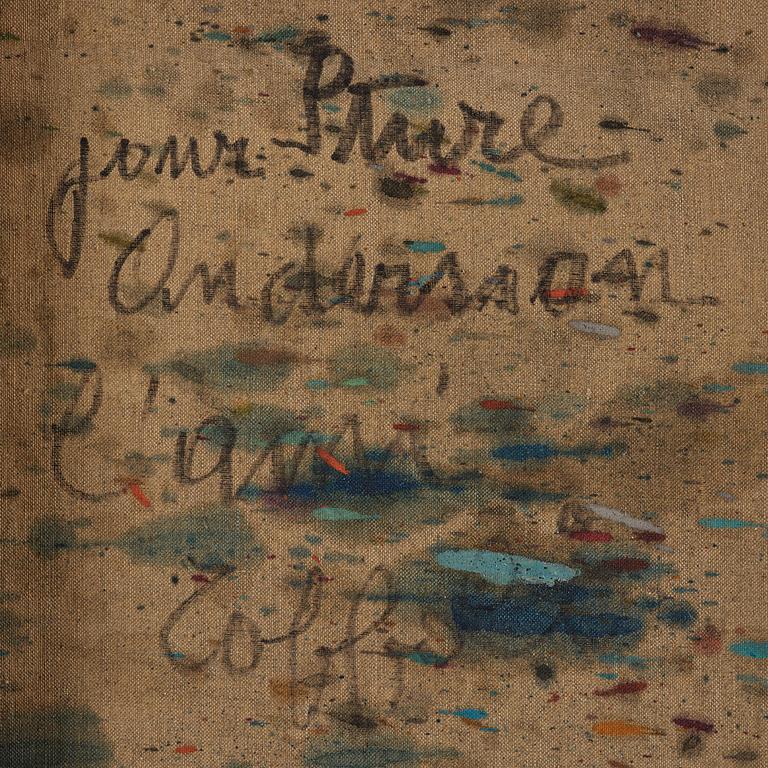 pour Sture
Andersson
l'ami